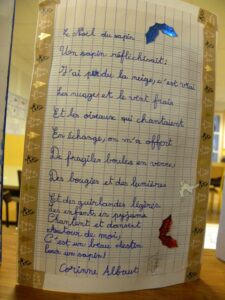 Le Noël du sapin
Un sapin réfléchissait :
J'ai perdu la neige, c'est vrai
Les nuages et le vent frais
Et les oiseaux qui chantaient
En échange, on m'a offert
De fragiles boules en verre,
Des bougies et des lumières
Et des guirlandes légères.
des enfants en pyjama
Chantent et dansent
Autour de moi,
C'est un beau destin
Pour un sapin !
Corinne Albaut